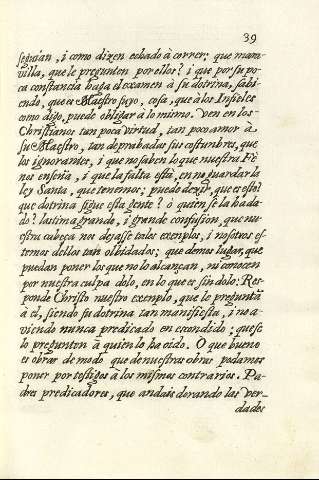 39
seguian, i como dizen echado à correr: que mara-
villa, que le pregunten por ellos? i que por su po-
ca constancia haga el examen à su dotrina, sabi-
endo, que es Maestro suyo, cosa, que à los Infieles
como digo, puede obligar a lo mismo. Ven en los
Christianos tan poca virtud, tan poco amor à
su Maestro, tan depravadas sus costunbres, que
los ignorantes, i que no saben lo que nuestra Fè
nos enseña, i que la falta està, en no guardar la
ley Santa, que tenemos; puede dezir, que es esto?
que dotrina sigue esta gente? ò quien se la ha da-
do? lastima grande, i grande confusion, que nu-
estra cabeça nos dejasse tales exemplos, i nosotros es-
temos dellos tan olbidados; que demos lugar, que
puedan poner los que no lo alcançan, ni conocen
por nuestra culpa dolo, en lo que es sin dolo: Res-
ponde Christo nuestro exemplo, que le preguntã
à el, siendo su dotrina tan manifiesta, i no a-
viendo nunca predicado en escondido; que se
lo pregunten à quien lo ha oido. O que bueno
es obrar de modo que de nuestras obras podamos
poner por testigos à los mismos contrarios. Pa-
dres predicadores, que andais dorando las ver-
dades